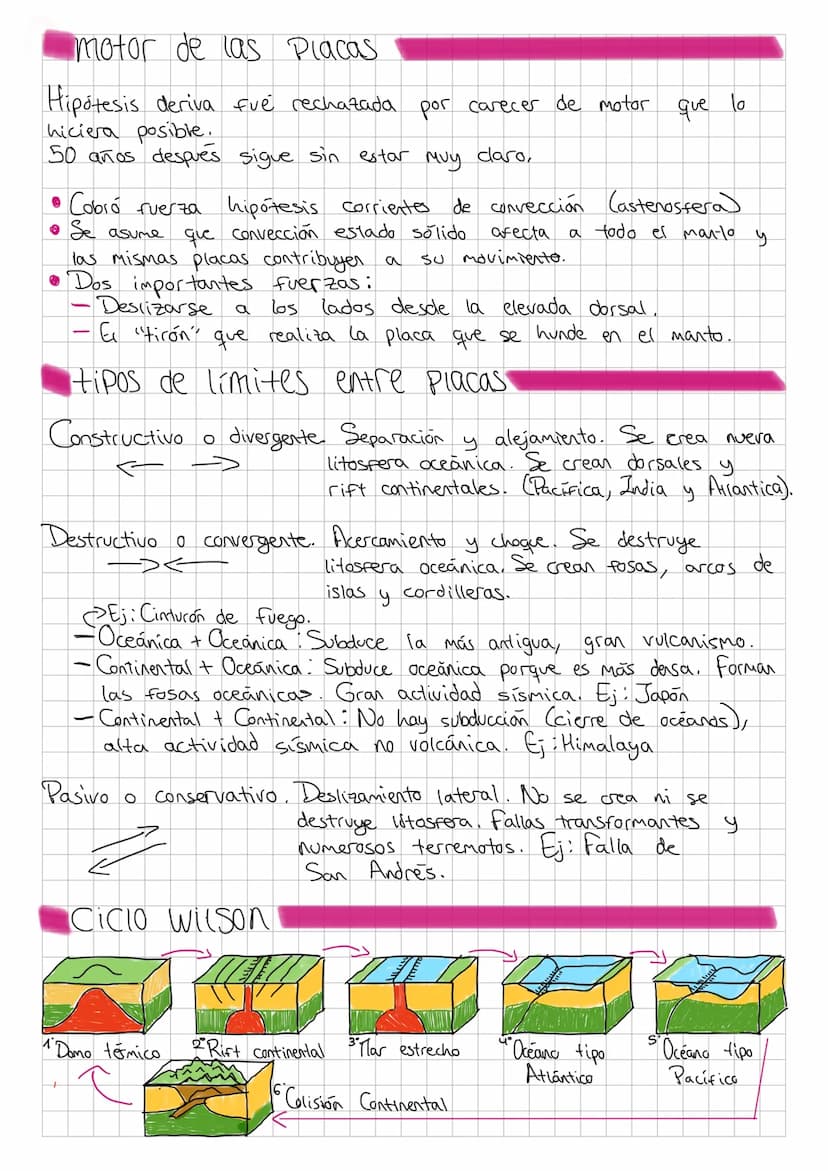 motor de las placas
Hipótesis deriva fué rechazada por carecer de motor que lo
hiciera posible.
50 años después sigue sin estar muy claro.
• Cobró fuerza hipótesis corrientes de convección (astenosfera)
• Se asume que convección estado sólido afecta a todo el manto y
las mismas placas contribuyen a su movimiento.
• Dos importantes fuerzas:
— Deslizarse a los lados desde la elevada dorsal.
— El "tirón" que realiza la placa que se hunde en el manto.
tipos de límites entre placas
Constructivo o divergente. Separación y alejamiento. Se crea nueva
litosfera oceánica. Se crean dorsales y
rift continentales. (Pacífica, India y Atlántica).
Destructivo o convergente. Acercamiento y choque. Se destruye
litosfera oceánica. Se crean fosas, arcos de
islas y cordilleras.
Ej: Cinturón de fuego.
— Oceánica + Oceánica: Subduce la más antigua, gran vulcanismo.
— Continental + Oceánica: Subduce oceánica porque es más densa. Forman
las fosas oceánicas. Gran actividad sísmica. Ej: Japón
— Continental + Continental: No hay subducción (cierre de océanos),
alta actividad sísmica no volcánica. Ej: Himalaya
Pasivo o conservativo. Deslizamiento lateral. No se crea ni se
destruye litosfera. Fallas transformantes y
numerosos terremotos. Ej: Falla de
San Andrés.
Ciclo Wilson
1º Domo térmico
2º Rift continental
3º Mar estrecho
4º Océano tipo
Atlántico
5º Océano tipo
Pacífico
6º Colisión Continental